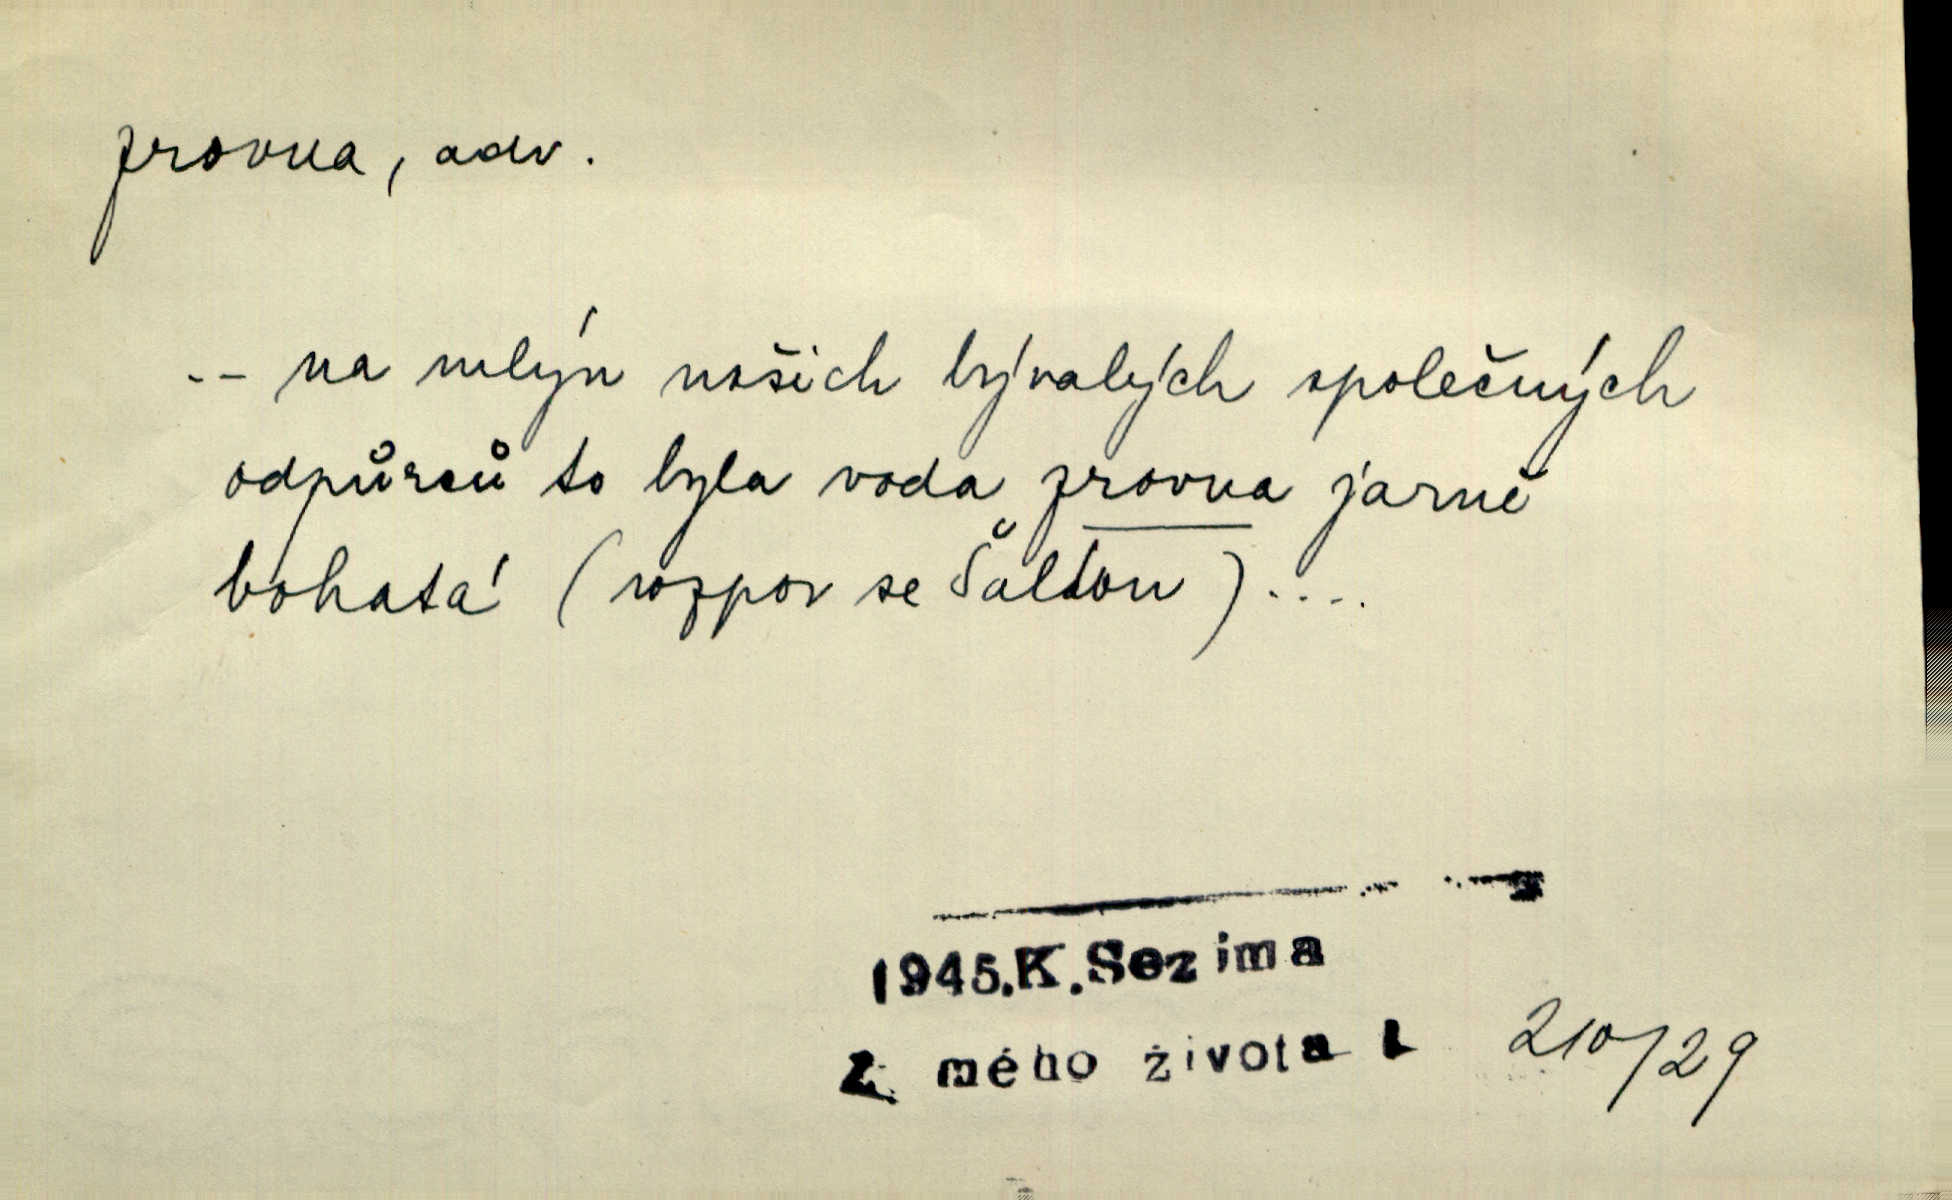 zrovna, adv.
-- na mlýn našich bývalých společných
odpůrců to byla voda zrovna jarně
bohatá (rozpor se Šaldou)....
1945.K.Sezima
Z mého života I 210/29